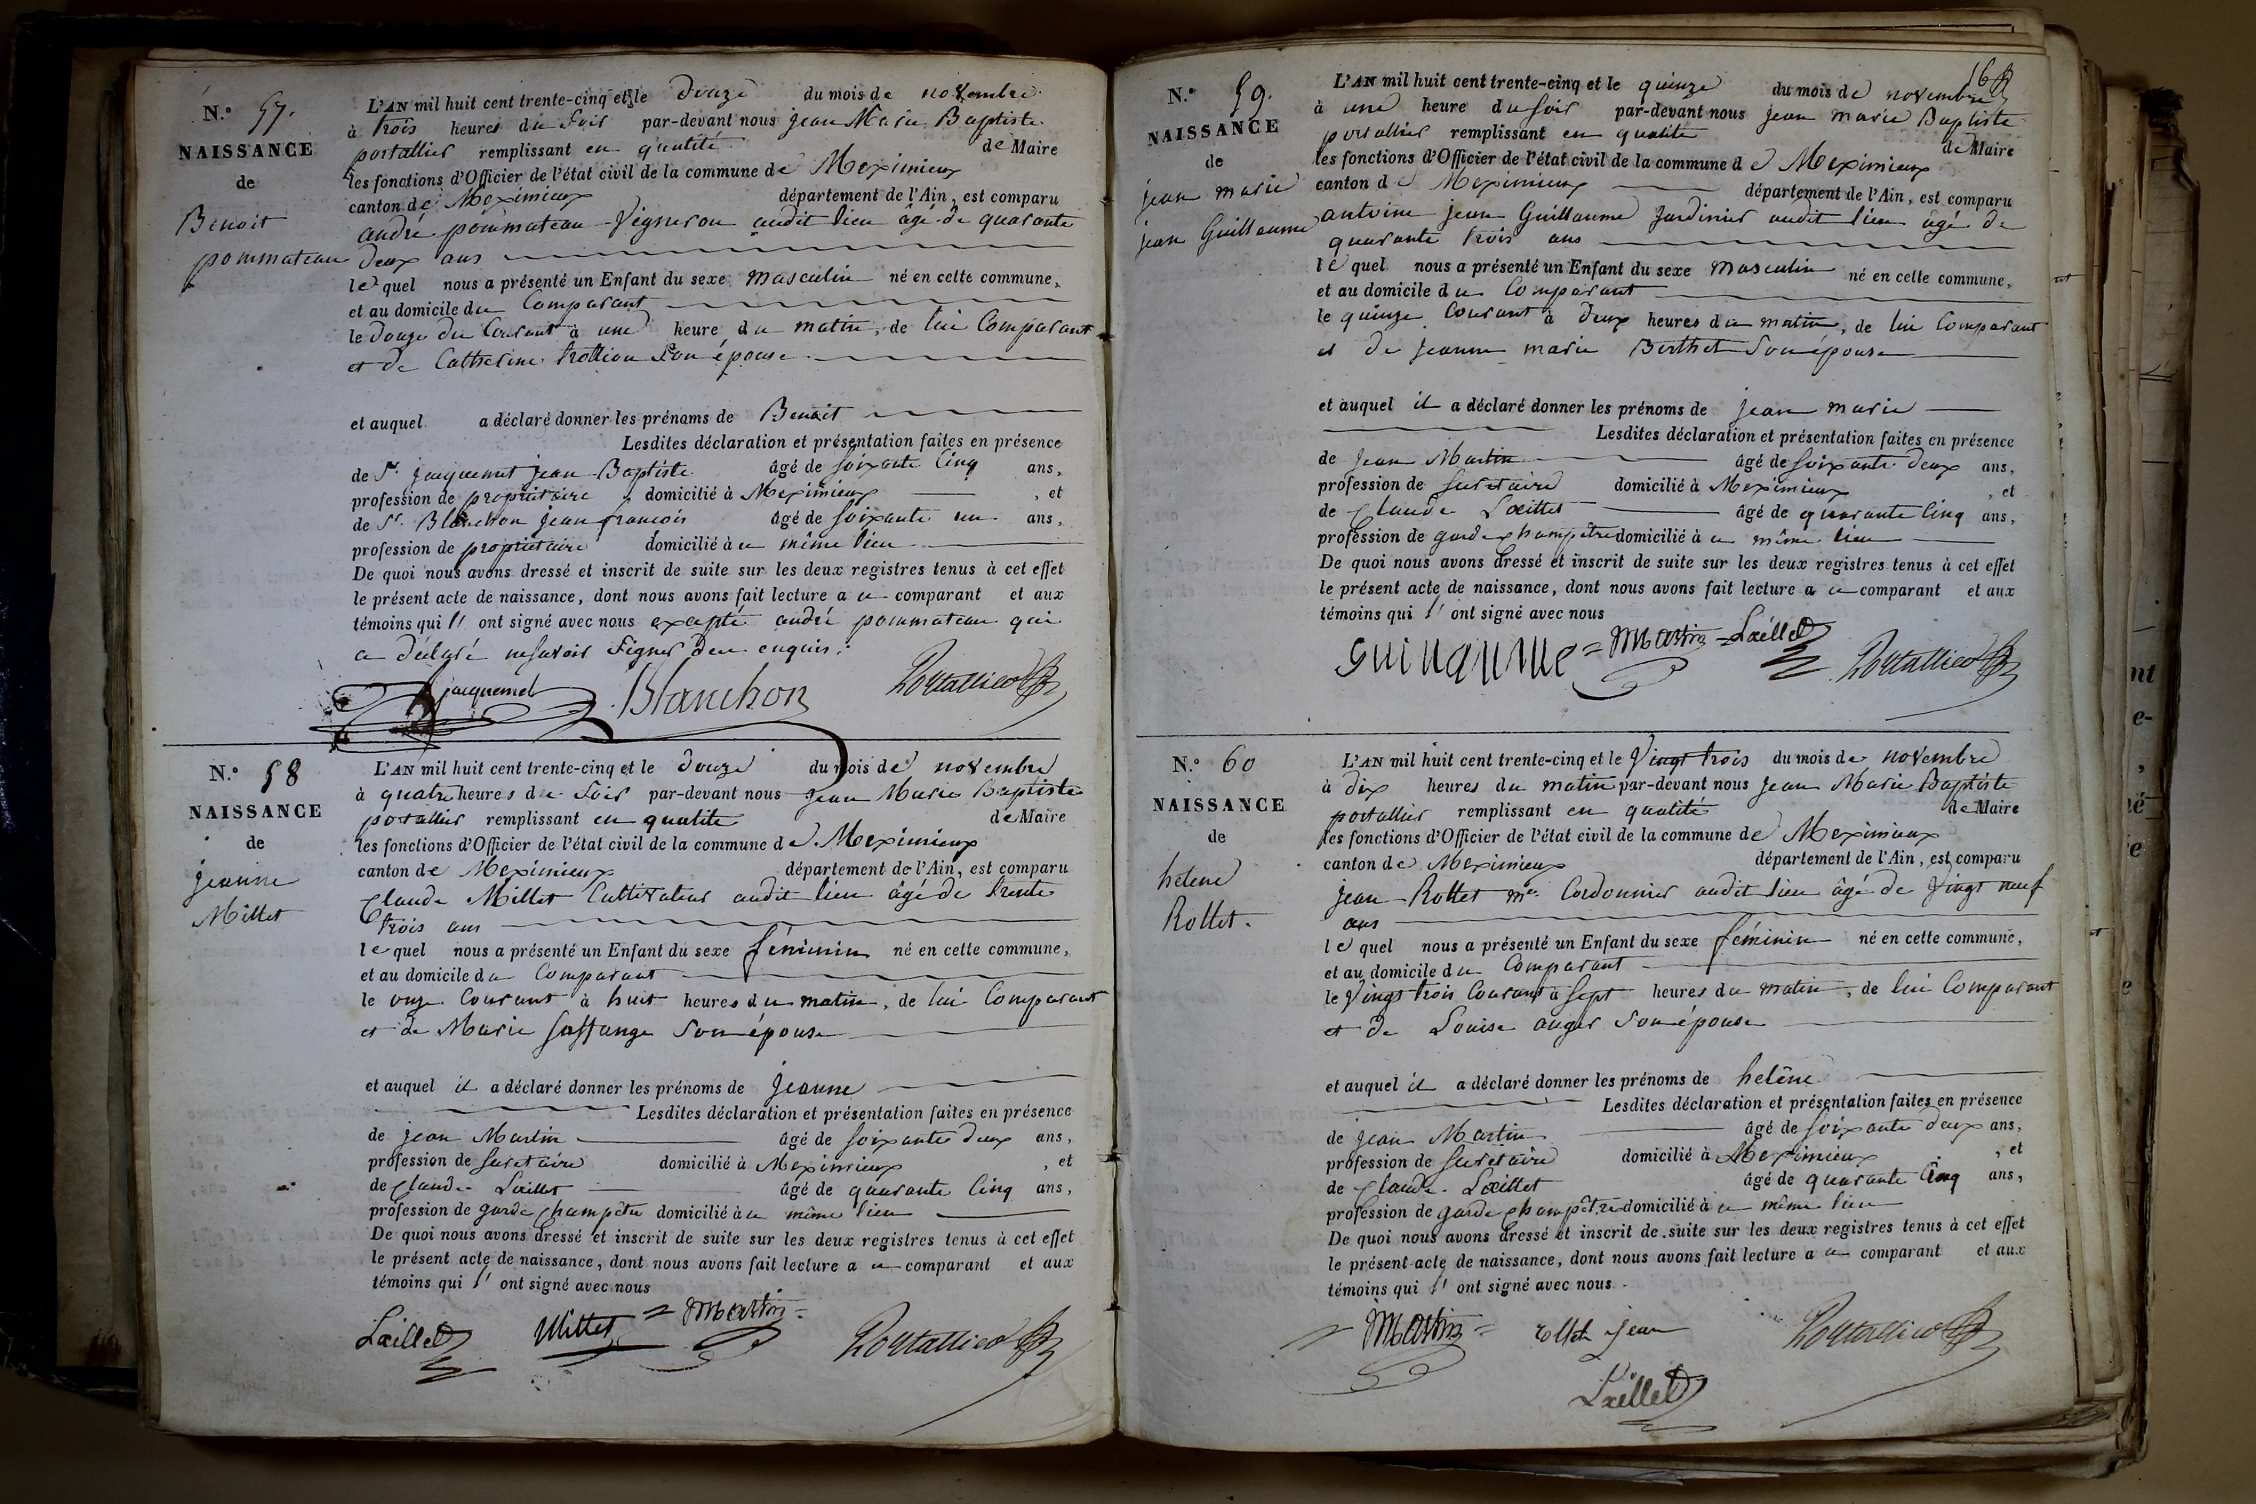 N.° 57.
NAISSANCE
de
Benoit
pommateau
L'AN mil huit cent trente-cinq et le douze du mois de novembre
à trois heures du Soir par-devant nous jean Marie Baptiste
portallier remplissant en qualité de Maire
les fonctions d'Officier de l'état civil de la commune de Meximieux
canton de Meximieux département de l'Ain, est comparu
andré pommateau Vigneron audit lieu âgé de quarante
deux ans
lequel nous a présenté un Enfant du sexe masculin né en cette commune,
et au domicile du Comparant
le douze du Courant à une heure du matin, de lui Comparant
et de Catherine trollion Son épouse
et auquel a déclaré donner les prénoms de Benoit
Lesdites déclaration et présentation faites en présence
de Sr. jacquemet jean Baptiste âgé de soixante Cinq ans,
profession de propriétaire, domicilié à Meximieux, et
de Sr. Blanchon jean françois âgé de soixante un ans,
profession de propriétaire domicilié à ce même lieu
De quoi nous avons dressé et inscrit de suite sur les deux registres tenus à cet effet
le présent acte de naissance, dont nous avons fait lecture a ce comparant et aux
témoins qui ont signé avec nous excepté andré pommateau qui
a déclaré ne savoir Signer de ce enquis.
jacquemet Blanchon Portallier
N.° 58
NAISSANCE
de
jeanne
Millet
L'AN mil huit cent trente-cinq et le douze du mois de novembre
à quatre heures du Soir par-devant nous jean Marie Baptiste
portallier remplissant en qualité de Maire
les fonctions d'Officier de l'état civil de la commune de Meximieux
canton de Meximieux département de l'Ain, est comparu
Claude Millet Cultivateur audit lieu âgé de trente
trois ans
lequel nous a présenté un Enfant du sexe féminin né en cette commune,
et au domicile du Comparant
le onze Courant à huit heures du matin, de lui Comparant
et de Marie Son épouse
et auquel il a déclaré donner les prénoms de jeanne
Lesdites déclaration et présentation faites en présence
de jean Martin âgé de soixante deux ans,
profession de secretaire domicilié à Meximieux, et
de Claude Laillet âgé de quarante Cinq ans,
profession de garde champêtre domicilié à ce même lieu
De quoi nous avons dressé et inscrit de suite sur les deux registres tenus à cet effet
le présent acte de naissance, dont nous avons fait lecture a ce comparant et aux
témoins qui ont signé avec nous
Laillet Millet = Martin = Portallier
56
N.° 59.
NAISSANCE
de
jean marie
jean Guillaume
L'AN mil huit cent trente-cinq et le quinze du mois de novembre
à une heure du soir par-devant nous jean marie Baptiste
portallier remplissant en qualité de Maire
les fonctions d'Officier de l'état civil de la commune de Meximieux
canton de Meximieux département de l'Ain, est comparu
antoine jean Guillaume jardinier audit lieu âgé de
quarante trois ans
lequel nous a présenté un Enfant du sexe masculin né en cette commune,
et au domicile du Comparant
le quinze Courant à deux heures du matin, de lui Comparant
et de jeanne marie Berthet Son épouse
et auquel il a déclaré donner les prénoms de jean marie
Lesdites déclaration et présentation faites en présence
de jean Martin âgé de soixante deux ans,
profession de secretaire domicilié à Meximieux, et
de Claude Laillet âgé de quarante Cinq ans,
profession de garde champêtre domicilié à ce même lieu
De quoi nous avons dressé et inscrit de suite sur les deux registres tenus à cet effet
le présent acte de naissance, dont nous avons fait lecture a ce comparant et aux
témoins qui ont signé avec nous
= Martin = Laillet Portallier
N.° 60
NAISSANCE
de
helene
Rollet.
L'AN mil huit cent trente-cinq et le Vingt trois du mois de novembre
à dix heures du matin par-devant nous jean Marie Baptiste
portallier remplissant en qualité de Maire
les fonctions d'Officier de l'état civil de la commune de Meximieux
canton de Meximieux département de l'Ain, est comparu
jean Rollet me. Cordonnier audit lieu âgé de Vingt neuf
ans
lequel nous a présenté un Enfant du sexe féminin né en cette commune,
et au domicile du Comparant
le Vingt trois Courant à Sept heures du matin, de lui Comparant
et de Louise auger Son épouse
et auquel il a déclaré donner les prénoms de helène
Lesdites déclaration et présentation faites en présence
de jean Martin âgé de soixante deux ans,
profession de secretaire domicilié à Meximieux, et
de Claude Laillet âgé de quarante Cinq ans,
profession de garde champêtre domicilié à ce même lieu
De quoi nous avons dressé et inscrit de suite sur les deux registres tenus à cet effet
le présent acte de naissance, dont nous avons fait lecture a ce comparant et aux
témoins qui ont signé avec nous
= Martin = rollet jean Portallier
Laillet